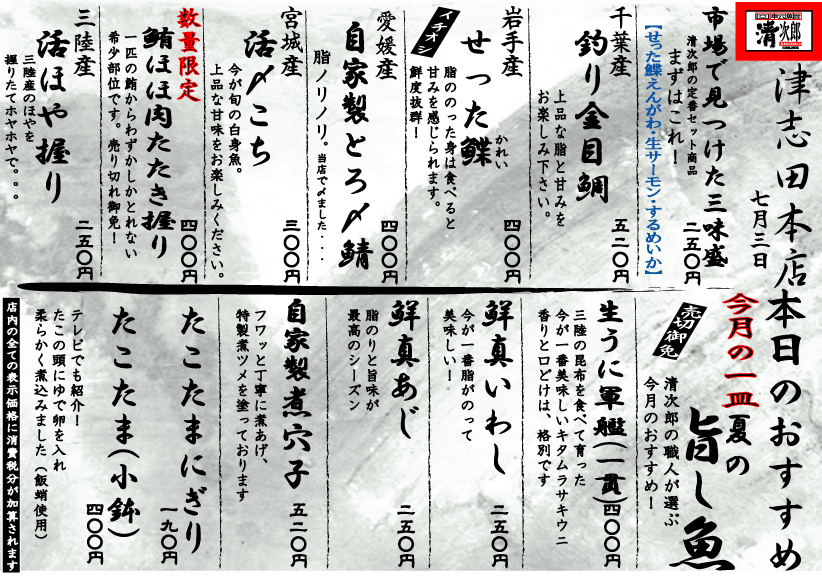 清次郎
津志田本店
七月三日
本日のおすすめ
市場で見つけた三味盛
二五〇円
清次郎の定番セット商品
まずはこれ！
【せった鰈えんがわ・生サーモン・するめいか】
千葉産
釣り金目鯛
五二〇円
上品な脂と甘みを
お楽しみ下さい。
岩手産
せった鰈
かれい
四〇〇円
イチオシ
脂ののった身は食べると
甘みを感じられます。
鮮度抜群！
愛媛産
自家製とろ〆鯖
四〇〇円
脂ノリノリ。当店で〆ました・・・
宮城産
活〆こち
三〇〇円
今が旬の白身魚。
上品な甘味をお楽しみください。
数量限定
鮪ほほ肉たたき握り
四〇〇円
一匹の鮪からわずかしかとれない
希少部位です。売り切れ御免！
三陸産
活ほや握り
二五〇円
三陸産のほやを
握りたてホヤホヤで。。。
今月の一皿
夏の
旨し魚
売切御免
清次郎の職人が選ぶ
今月のおすすめ！
生うに軍艦(一貫)
四〇〇円
三陸の昆布を食べて育った
今が一番美味しいキタムラサキウニ
香りと口どけは、格別です
鮮真いわし
二五〇円
今が一番脂がのって
美味しい！
鮮真あじ
二五〇円
脂のりと旨味が
最高のシーズン
自家製煮穴子
五二〇円
フワッと丁寧に煮あげ、
特製煮ツメを塗っております
たこたまにぎり
一九〇円
たこたま(小鉢)
四〇〇円
テレビでも紹介！
たこの頭にゆで卵を入れ
柔らかく煮込みました（飯蛸使用）
店内の全ての表示価格に消費税分が加算されます